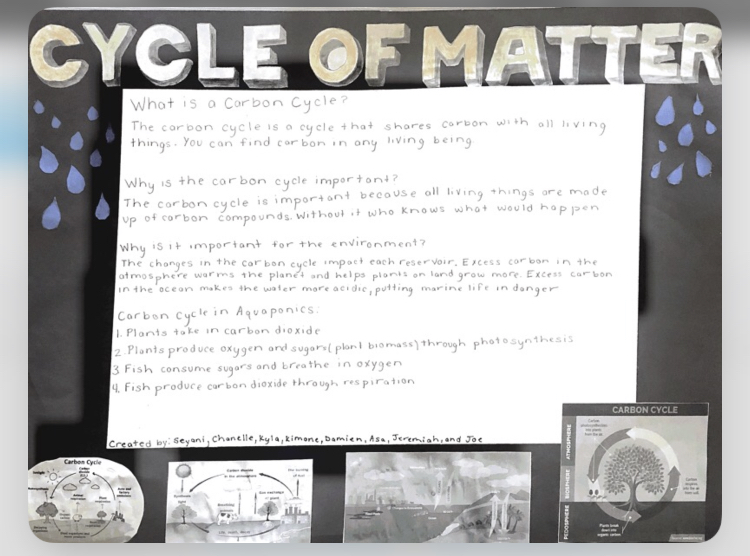 CYCLE OF MATTER
What is a Carbon Cycle?
The carbon cycle is a cycle that shares carbon with all living
things. You can find carbon in any living being
Why is the carbon cycle important?
The carbon cycle is important because all living things are made
up of carbon compounds. Without it who knows what would happen
Why is it important for the environment?
The changes in the carbon cycle impact each reservoir. Excess carbon in the
atmosphere warms the planet and helps plants on land grow more. Excess carbon
in the ocean makes the water more acidic, putting marine life in danger
Carbon Cycle in Aquaponics:
1. Plants take in carbon dioxide
2. Plants produce oxygen and sugars (plant biomass) through photosynthesis
3 Fish consume sugars and breathe in oxygen
4. Fish produce carbon dioxide through respiration
Created by: Seyani, Chanelle, Kyla, Kimone, Damien, Asa, Jeremiah, and Joe
Carbon Cycle
CARBON CYCLE
ATMOSPHERE
BIOSPHERE
PEDOSPHERE